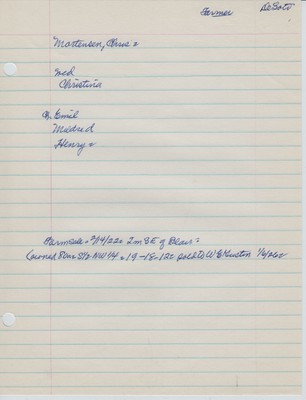 Farmer DeSoto
Mortensen, Chris =
wed
Christina
B. Emil
Mildred
Henry =
Farm sale = 2/14/22 = 2m SE of Blair =
(owned 80a = S½ NW¼ = 19-18-12 = sold to W E